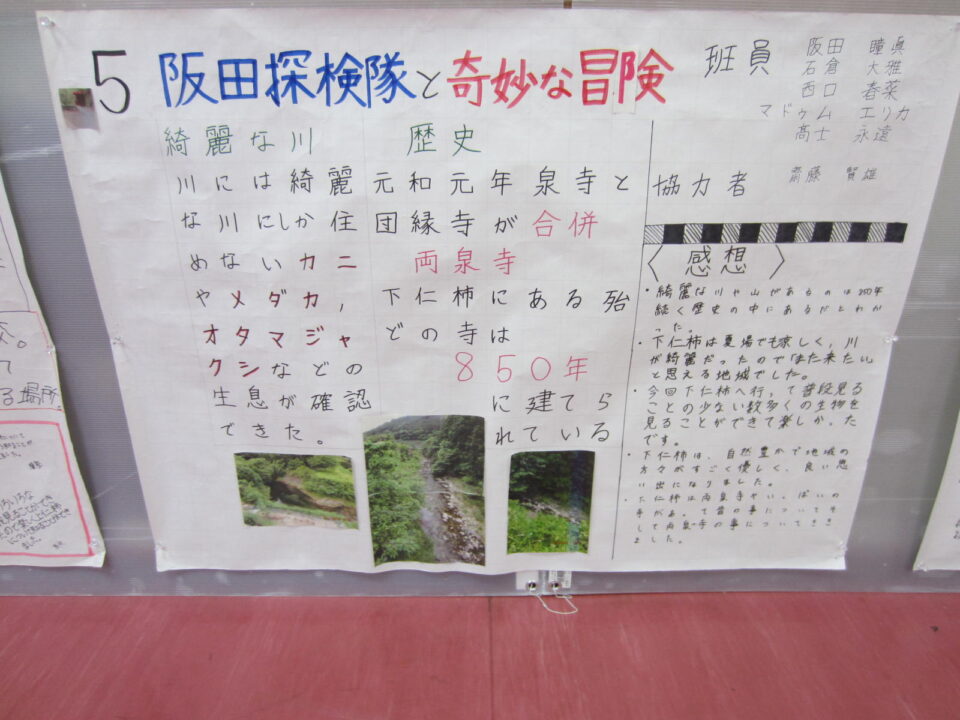 5 阪田探検隊と奇妙な冒険
班員 阪田 瞳真
石倉 大雅
西口 春菜
マドゥム エリカ
高士 永遠
協力者 齋藤 賢雄
綺麗な川
川には綺麗
な川にしか住
めないカニ
やメダカ,
オタマジャ
クシなどの
生息が確認
できた。
歴史
元和元年泉寺と
団縁寺が合併
両泉寺
下仁柿にある殆
どの寺は
850年
に建てら
れている
〈感想〉
・綺麗な川や山があるのは
続く歴史の中にあるだとわか
った。
・下仁柿は夏場でも涼しく,川
が綺麗だったので「また来たい」
と思える地域でした。
・今回下仁柿へ行って普段見る
ことの少ない数多くの生物を
見ることができて楽しかった
です。
・下仁柿は、自然豊かで地域の
方々がすごく優しく、良い思
い出になりました。
・下仁柿は両泉寺やいっぱいの
寺があって昔の事についてそ
して両泉寺の事についてきき
ました。
る場所